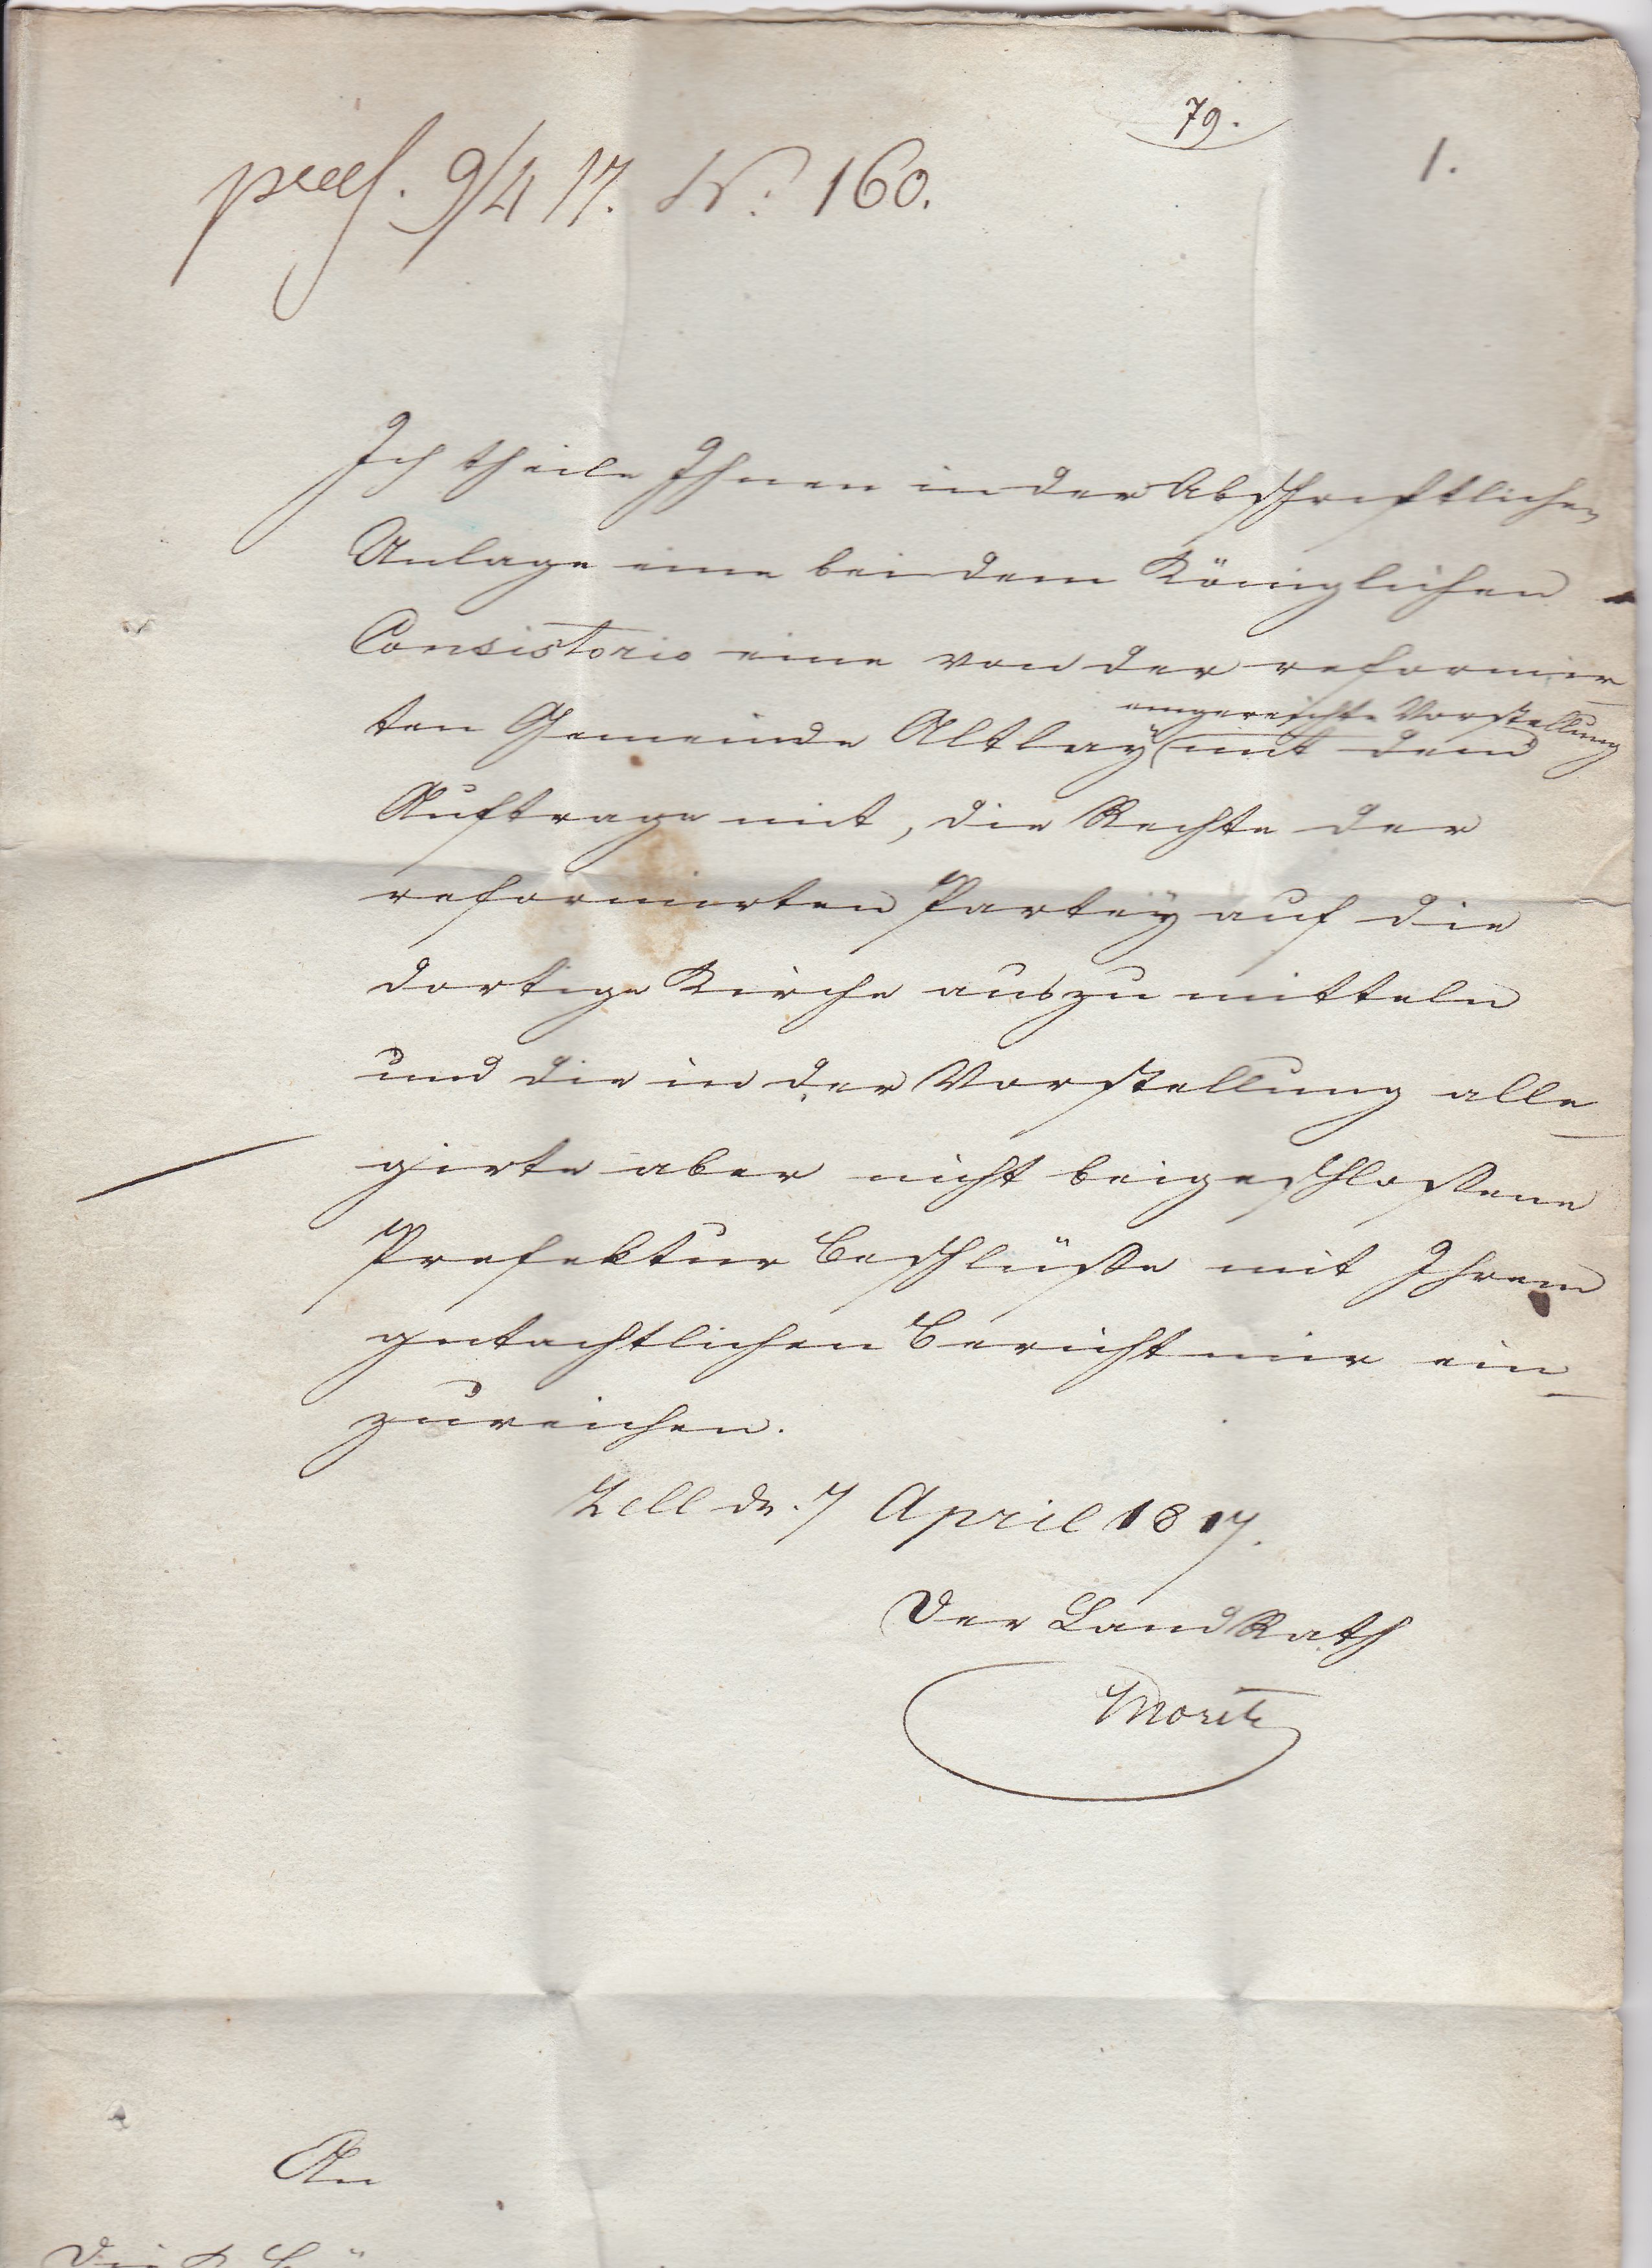 79.
1.
praes. 9/4 17. N: 160.
Ich theile Ihnen in der Abschriftlichen
Anlage eine bei dem Königlichen
Consistorio eine von der reformir-
eingereichte Vorstellung
ten Gemeinde Altlay mit dem
Auftrage mit, die Rechte der
reformirten Partey auf die
dortige Kirche auszumitteln
und die in der Vorstellung alle-
girte aber nicht beigeschlossene
Prefektur Beschlüsse mit Ihrem
gutachtlichen Bericht mir ein-
zureichen.
Zell dn. 7 April 1817.
Der LandRath
Moritz
An